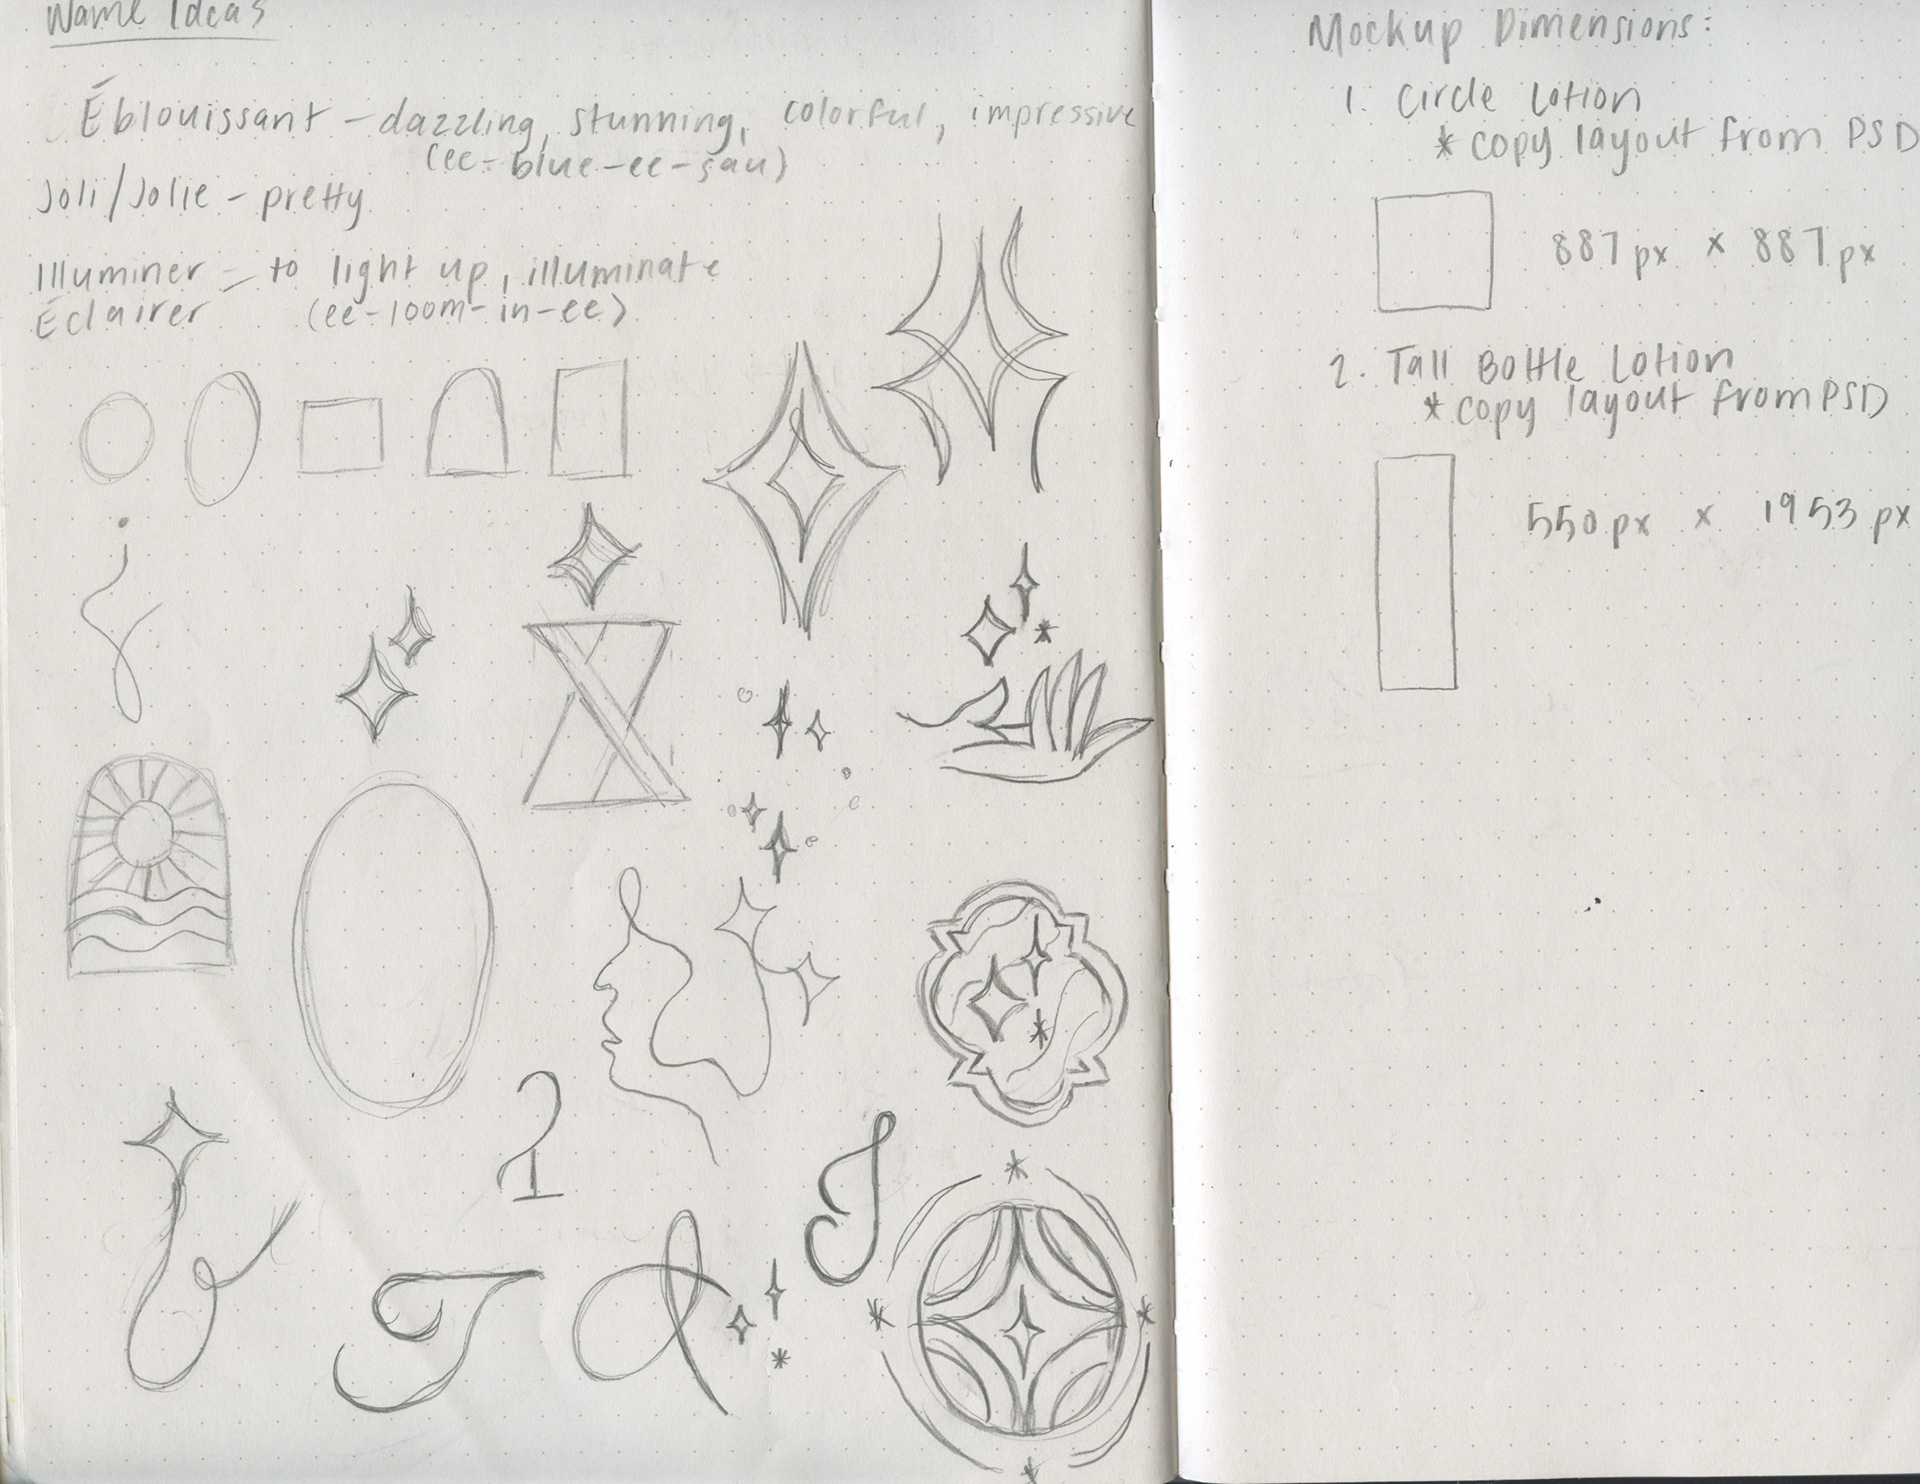 Name Ideas
Éblouissant - dazzling, stunning, colorful, impressive
(ee-blue-ee-sau)
Joli/Jolie - pretty
Illuminer - to light up, illuminate
Éclairer (ee-loom-in-ee)
Mockup Dimensions:
1. Circle Lotion
* copy layout from PSD
887 px x 887 px
2. Tall Bottle Lotion
* copy layout from PSD
550 px x 1953 px